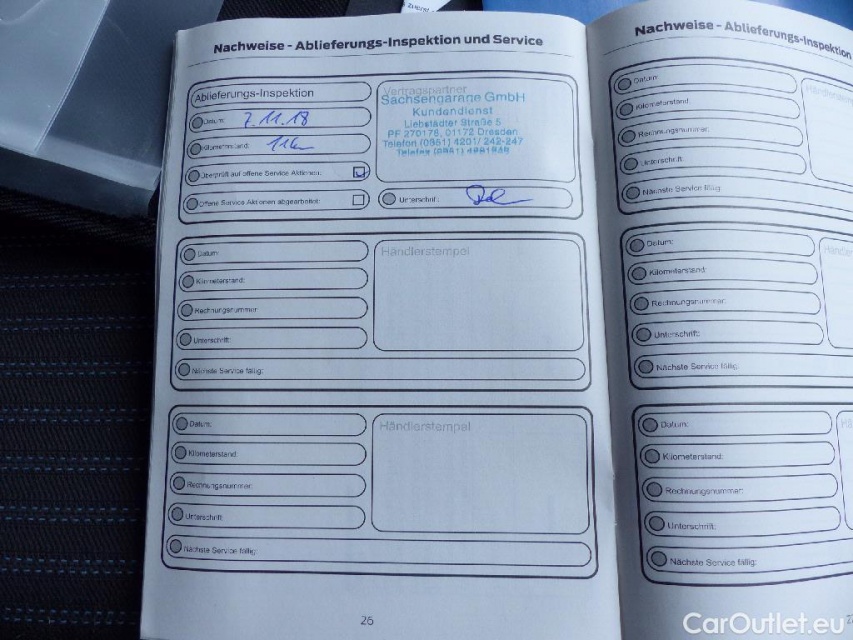 Nachweise - Ablieferungs-Inspektion und Service
Ablieferungs-Inspektion
Datum: 7.11.18
Kilometerstand: 11km
Überprüft auf offene Service Aktionen:
Offene Service Aktionen abgearbeitet:
Vertragspartner
Sachsengarage GmbH
Kundendienst
Liebstädter Straße 5
PF 270178, 01172 Dresden
Telefon (0351) 4201/ 242-247
Unterschrift:
Datum:
Kilometerstand:
Rechnungsnummer:
Unterschrift:
Nächste Service fällig:
Händlerstempel
Datum:
Kilometerstand:
Rechnungsnummer:
Unterschrift:
Nächste Service fällig:
Händlerstempel
26
Nachweise - Ablieferungs-Inspektion
Datum:
Kilometerstand:
Rechnungsnummer:
Unterschrift:
Nächste Service fällig:
Datum:
Kilometerstand:
Rechnungsnummer:
Unterschrift:
Nächste Service fällig:
Datum:
Kilometerstand:
Rechnungsnummer:
Unterschrift:
Nächste Service fällig:
CarOutlet.eu